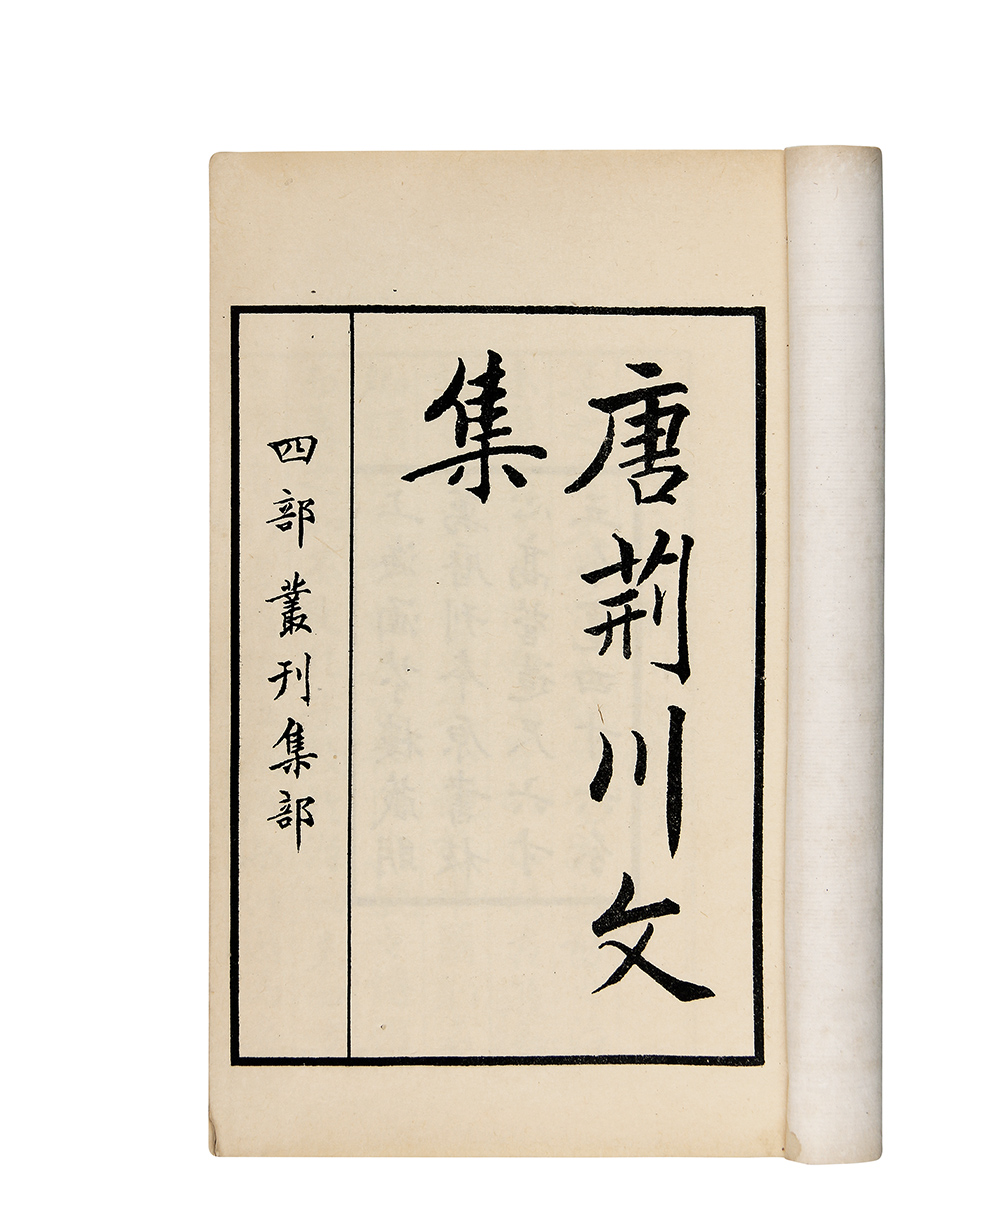 唐荊川文
集
四部叢刊集部